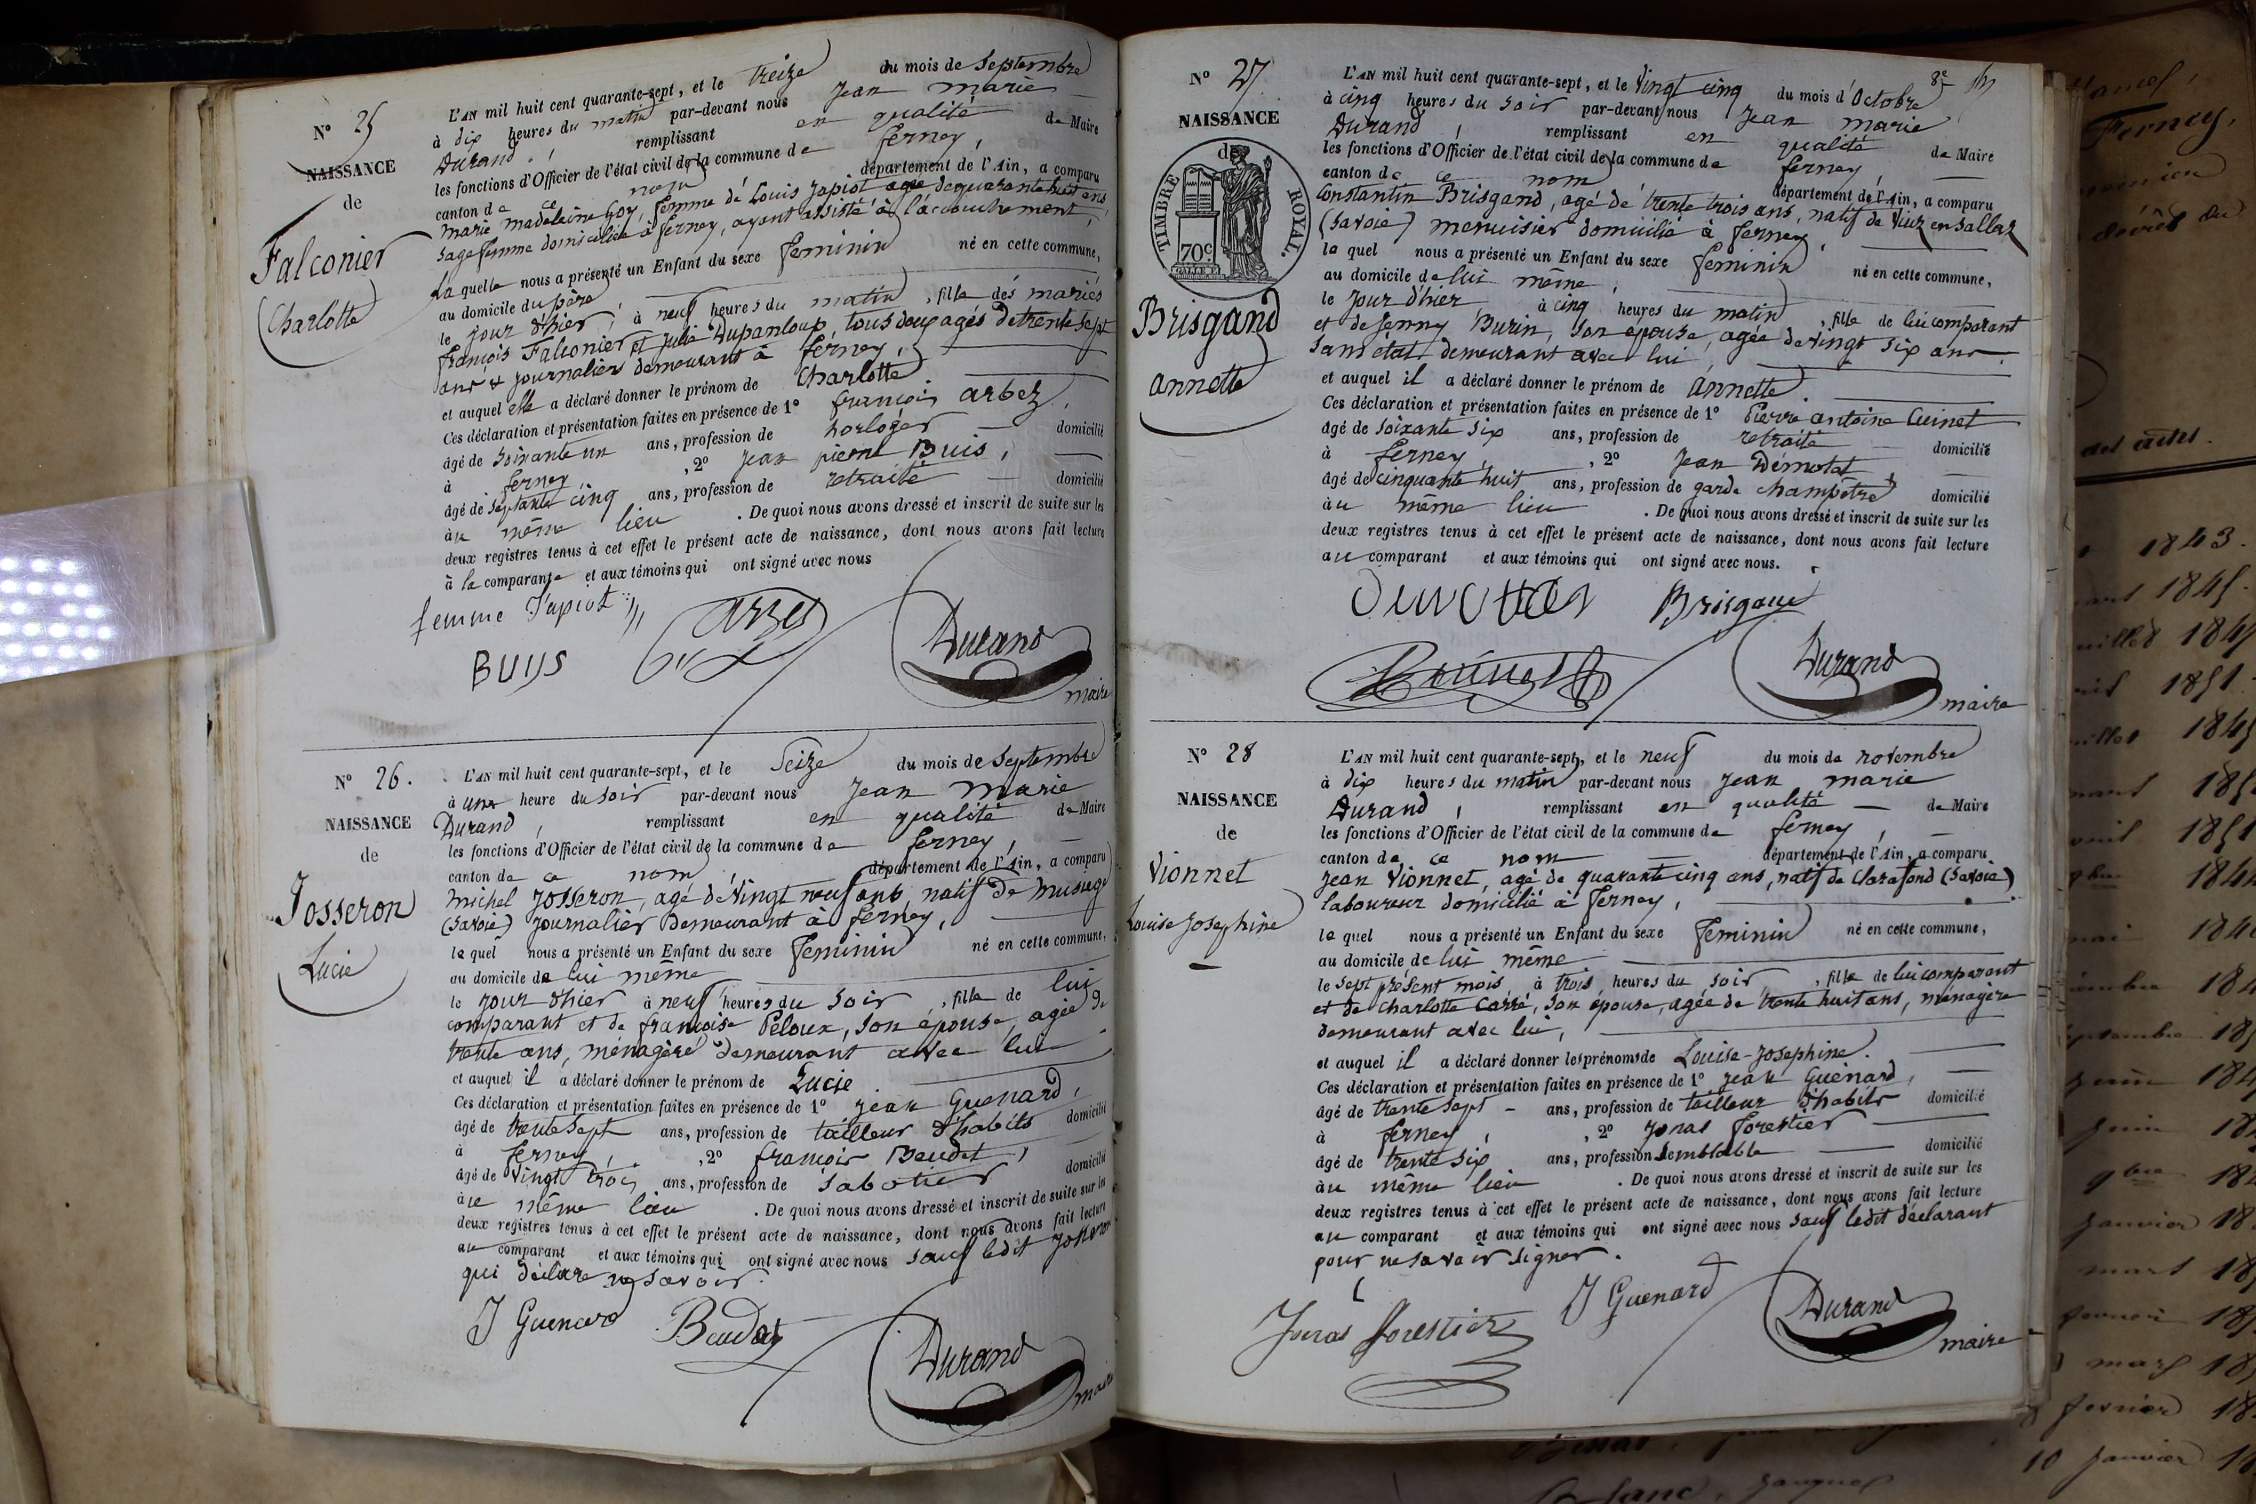 N° 25
NAISSANCE
de
Falconier
Charlotte
L'AN mil huit cent quarante-sept, et le treize du mois de Septembre
à dix heures du matin par-devant nous Jean Marie
Durand, remplissant en qualité de Maire
les fonctions d'Officier de l'état civil de la commune de ferney,
canton de ce nom département de l'Ain, a comparu
Marie Madeleine Goy, femme de Louis Japiot agée de quarante huit ans
sage femme domiciliée à ferney, ayant assisté à l'accouchement,
la quelle nous a présenté un Enfant du sexe féminin né en cette commune,
au domicile du père
le jour d'hier, à neuf heures du matin, fille des mariés
françois Falconier et Julie Dupanloup, tous deux agés de trente sept
ans & journaliers demeurant à ferney,
et auquel elle a déclaré donner le prénom de Charlotte
Ces déclaration et présentation faites en présence de 1° françois arbez,
âgé de soixante un ans, profession de horloger domicilié
à ferney, 2° Jean pierre Buis,
âgé de septante cinq ans, profession de retraité domicilié
au même lieu. De quoi nous avons dressé et inscrit de suite sur les
deux registres tenus à cet effet le présent acte de naissance, dont nous avons fait lecture
à la comparante et aux témoins qui ont signé avec nous
femme Japiot
Arbez
BUIS
Durand
maire
N° 26.
NAISSANCE
de
Josseron
Lucie
L'AN mil huit cent quarante-sept, et le Seize du mois de Septembre
à une heure du soir par-devant nous Jean Marie
Durand, remplissant en qualité de Maire
les fonctions d'Officier de l'état civil de la commune de ferney,
canton de ce nom département de l'Ain, a comparu
Michel Josseron, agé de vingt neuf ans, natif de Musiège
(Savoie) journalier demeurant à ferney,
le quel nous a présenté un Enfant du sexe féminin né en cette commune,
au domicile de lui même
le jour d'hier à neuf heures du soir, fille de lui
comparant et de françoise Péloux, son épouse, agée de
trente ans, ménagère demeurant avec lui
et auquel il a déclaré donner le prénom de Lucie.
Ces déclaration et présentation faites en présence de 1° Jean Guenard,
âgé de trente sept ans, profession de tailleur d'habits domicilié
à ferney, 2° françois Beudet,
âgé de vingt trois ans, profession de sabotier domicilié
au même lieu. De quoi nous avons dressé et inscrit de suite sur les
deux registres tenus à cet effet le présent acte de naissance, dont nous avons fait lecture
au comparant et aux témoins qui ont signé avec nous sauf ledit Josseron
qui déclare ne savoir.
J Guenard
Durand
maire
N° 27
NAISSANCE
de
TIMBRE ROYAL.
70c
Brisgand
annette
8e
L'AN mil huit cent quarante-sept, et le vingt cinq du mois d'Octobre
à cinq heures du soir par-devant nous Jean marie
Durand, remplissant en qualité de Maire
les fonctions d'Officier de l'état civil de la commune de ferney
canton de ce nom département de l'Ain, a comparu
Constantin Brisgand, agé de trente trois ans, natif de Viuz en Sallaz
(Savoie) menuisier domicilié à ferney,
le quel nous a présenté un Enfant du sexe féminin né en cette commune,
au domicile de lui même,
le jour d'hier à cinq heures du matin, fille de lui comparant
et de Jenny Burin, son épouse, agée de vingt six ans
sans état demeurant avec lui,
et auquel il a déclaré donner le prénom de Annette.
Ces déclaration et présentation faites en présence de 1° Pierre antoine Cuinet
âgé de soixante six ans, profession de retraité domicilié
à ferney, 2° Jean Démotat
âgé de cinquante huit ans, profession de garde champêtre domicilié
au même lieu. De quoi nous avons dressé et inscrit de suite sur les
deux registres tenus à cet effet le présent acte de naissance, dont nous avons fait lecture
au comparant et aux témoins qui ont signé avec nous.
Brisgand
Durand
maire
N° 28
NAISSANCE
de
Vionnet
Louise Josephine
L'AN mil huit cent quarante-sept, et le neuf du mois de novembre
à dix heures du matin par-devant nous Jean marie
Durand, remplissant en qualité de Maire
les fonctions d'Officier de l'état civil de la commune de ferney,
canton de ce nom département de l'Ain, a comparu
Jean Vionnet, agé de quarante cinq ans, natif de Clarafond (Savoie)
laboureur domicilié à ferney,
le quel nous a présenté un Enfant du sexe féminin né en cette commune,
au domicile de lui même
le sept présent mois, à trois heures du soir, fille de lui comparant
et de Charlotte Carré, son épouse, agée de trente huit ans, ménagère
demeurant avec lui,
et auquel il a déclaré donner les prénoms de Louise-Josephine.
Ces déclaration et présentation faites en présence de 1° Jean Guénard,
âgé de trente sept ans, profession de tailleur d'habits domicilié
à ferney, 2° Jonas forestier
âgé de trente six ans, profession semblable domicilié
au même lieu. De quoi nous avons dressé et inscrit de suite sur les
deux registres tenus à cet effet le présent acte de naissance, dont nous avons fait lecture
au comparant et aux témoins qui ont signé avec nous sauf ledit déclarant
pour ne savoir signer.
Jonas forestier
J Guenard
Durand
maire
Ferney,
1843.
1851
mars
février
10 janvier